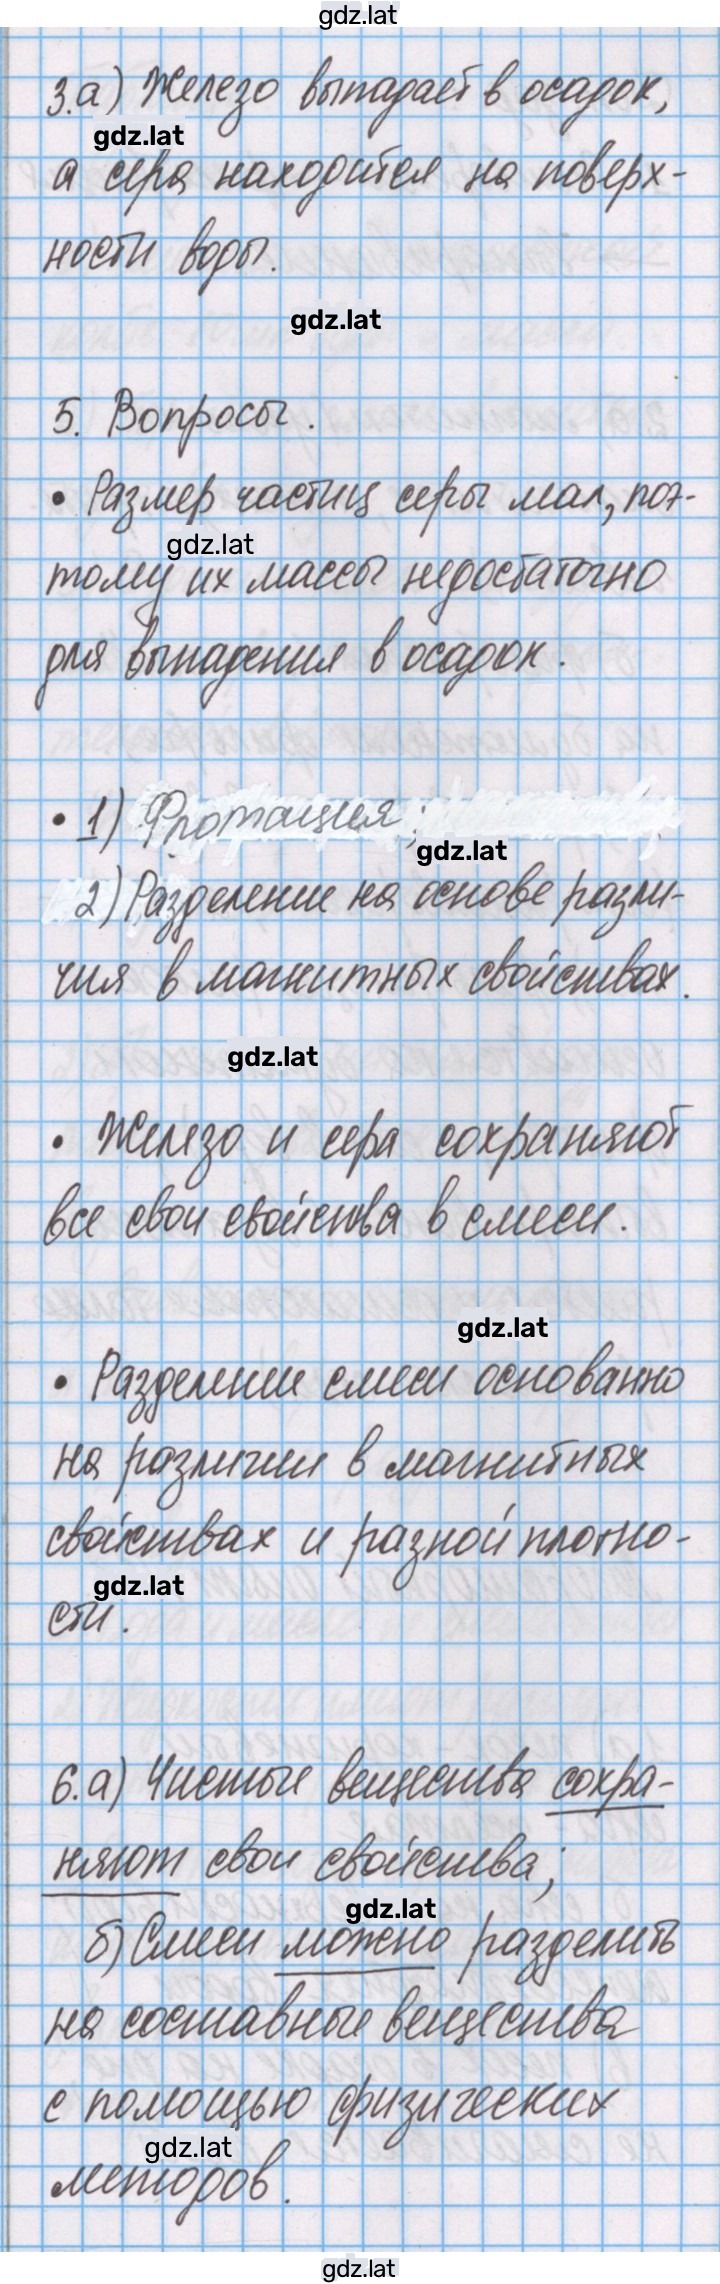 gdz.lat
3.а) Железо выпадает в осадок,
gdz.lat
а сера находится на поверх-
ности воды.
gdz.lat
5. Вопросы.
• Размер частиц серы мал, поэ-
gdz.lat
тому их массы недостаточно
для выпадения в осадок.
• 1) Флотация;
gdz.lat
2) Разделение на основе разли-
чия в магнитных свойствах.
gdz.lat
• Железо и сера сохраняют
все свои свойства в смеси.
gdz.lat
• Разделение смеси основанно
на различии в магнитных
свойствах и разной плотно-
gdz.lat
сти.
6.а) Чистые вещества сохра-
няют свои свойства;
gdz.lat
б) Смеси можно разделить
на составные вещества
с помощью физических
gdz.lat
методов.
gdz.lat